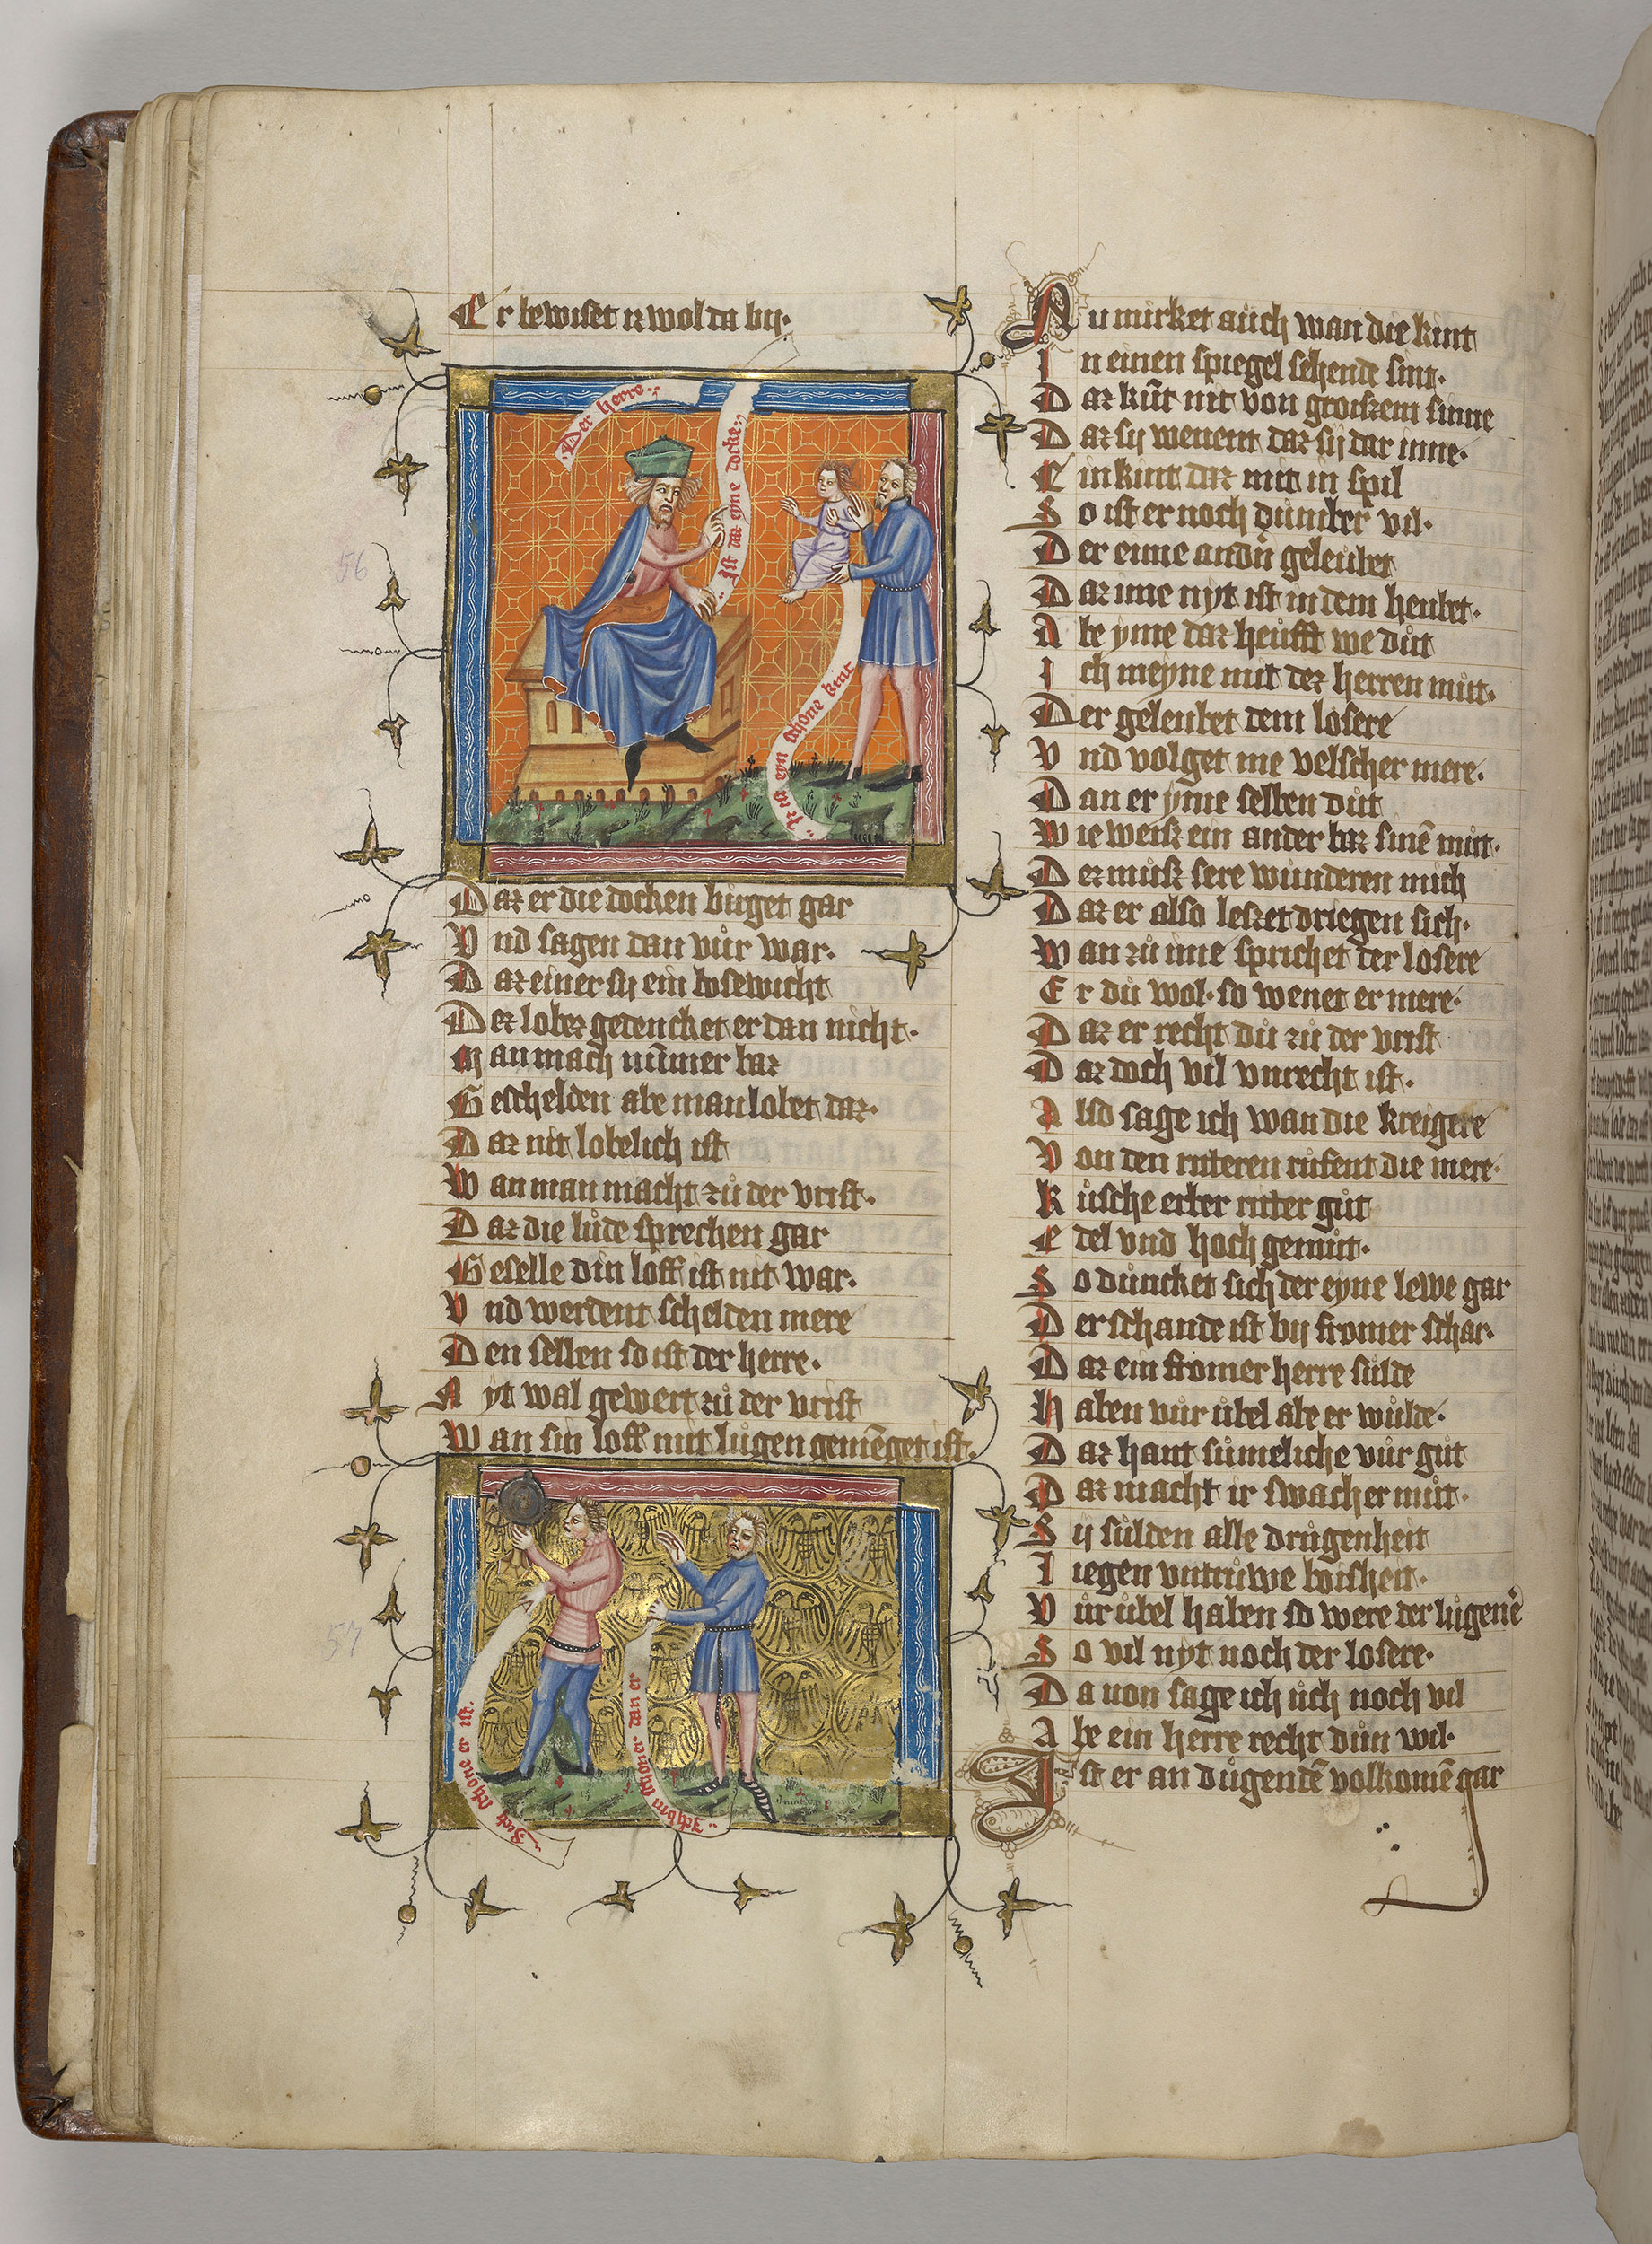 Er bewiset iz wol da bij.
Der herre
Ist daz eyne docke
Ja eyn schone kint
56
Daz er die docken birget gar
Vnd sagen dan vuͦr war.
Daz einer sij ein bosewicht
Der lober gedencket er dan nicht.
Man mach nūmer baz
Geschelden abe man lobet daz.
Daz nit lobelich ist
Wan man macht zuͦ der vrist.
Daz die luͦde sprechen gar
Geselle din loff ist nit war.
Vnd werdent schelden mere
Den sellen so ist der herre.
Nyt wal gewert zuͦ der vrist
Wan sin loff mit luͦgen gemēget ist.
Sich schone er ist.
Ich bin schoner dan er
57
Nu mirket auͦch wan die kint
In einen spiegel sehende sint.
Daz kuͦt nit von groiszem sinne
Daz sij wenent daz sij dar inne.
Ein kint daz mit in spil
So ist er noch duͦmber vil.
Der eime andn̄ geleubet
Daz ime nyt ist in dem heubet.
Abe yme daz heuͦfft we duͦt
Ich meyne mit der herren muͦt.
Der geleubet dem losere
Vnd volget me velscher mere.
Dan er yme sellen duͦt
Wie weisz ein ander baz sinē muͦt.
Der muͦsz sere wuͦnderen mich
Daz er also leszet driegen sich.
Wan zuͦ ime sprichet der losere
Er duͦ wol. so wenet er mere.
Daz er recht duͦ zuͦ der vrist
Daz doch vil vnrecht ist.
Also sage ich wan die kreigere
Von den ritteren ruͦfent die mere.
Kuͦsche erber ritter guͦt
Edel vnd hoch gemuͦt.
So duͦncket sich der eyne lewe gar
Der schande ist bij fromer schar.
Daz ein fromer herre suͦlde
Haben vuͦr uͦbel abe er wuͦlde.
Daz hant suͦmeliche vuͦr guͦt
Daz macht ir swacher muͦt.
Sij suͦlden alle druͦgenheit
Liegen vntruͦwe boisheit.
Vuͦr uͦbel haben so were der luͦgenē
So vil nyt noch der losere.
Da uon sage ich uͦch noch vil
Abe ein herre recht duͦn wil.
Ist er an duͦgendē volkomē gar